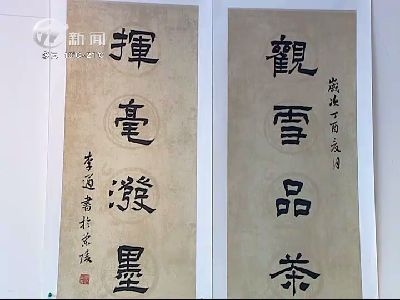 新闻
觀雪品茶
歲次丁酉月
揮毫潑墨
李道書於陵